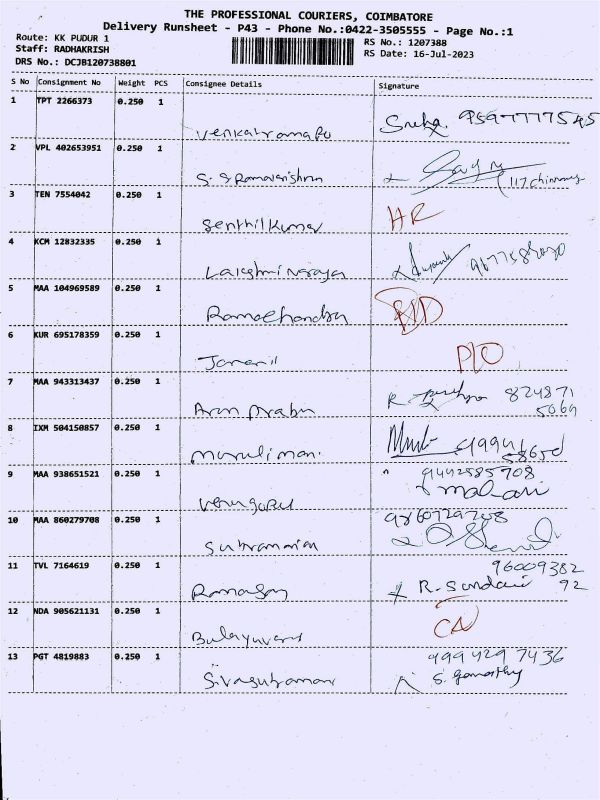 THE PROFESSIONAL COURIERS, COIMBATORE
Delivery Runsheet - P43 - Phone No.:0422-3505555 - Page No.:1
Route: KK PUDUR 1 RS No.: 1207388
Staff: RADHAKRISH RS Date: 16-Jul-2023
DRS No.: DCJB120738801
S No Consignment No Weight PCS Consignee Details Signature
1 TPT 2266373 0.250 1
Venkatramapu Sneha 9597777545
2 VPL 402653951 0.250 1
S. S Ramakrishnan 117 chinnamy
3 TEN 7554042 0.250 1
Senthilkumar HR
4 KCM 12832335 0.250 1
Lakshmi Narayan
5 MAA 104969589 0.250 1
Ramachandra
6 KUR 695178359 0.250 1
P/O
7 MAA 943313437 0.250 1
Arun prabu R. 824871
5069
8 IXM 504150857 0.250 1
Muralimani 99941
58650
9 MAA 938651521 0.250 1 9442585708
Venuguru malari
10 MAA 860279708 0.250 1 9860729708
Subramanian
11 TVL 7164619 0.250 1 96009382
Ramasay R. Sundari 92
12 NDA 905621131 0.250 1
CA
13 PGT 4819883 0.250 1 9994297436
Sivasubraman S. Gomathy